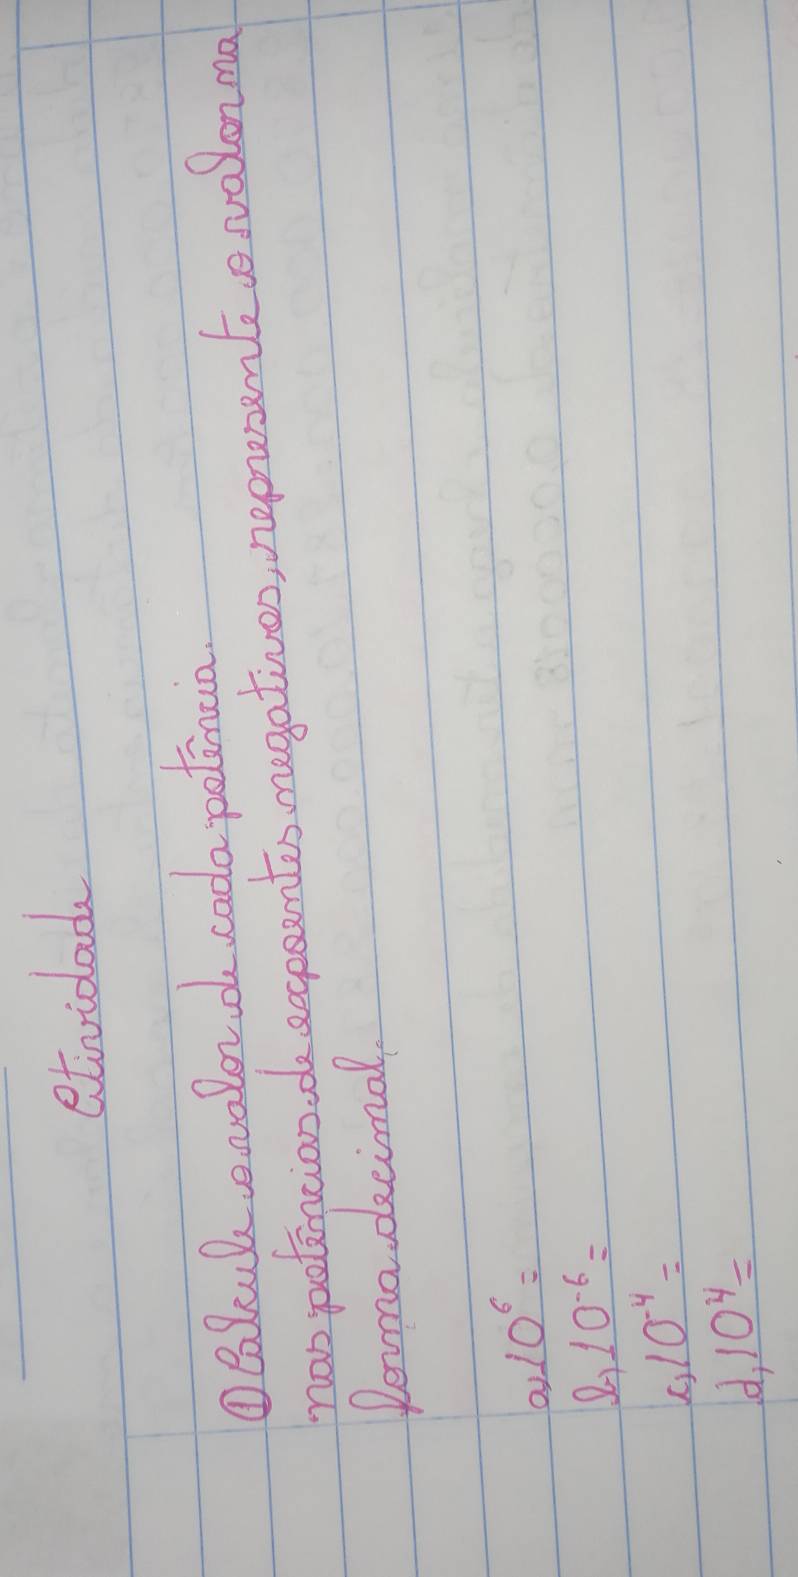 Atividade
① Calcule o valor de cada potência.
nas potências de expoentes negativos, represente o valor na
forma decimal.
a) 10⁶ =
b) 10⁻⁶ =
c) 10⁻⁴ =
d) 10⁴ =